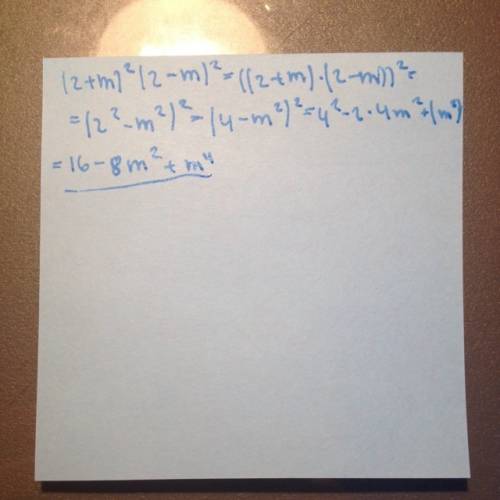 (2+m)²(2-m)²=((2+m)·(2-m))²=
=(2²-m²)²=(4-m²)²=4²-2·4m²+(m²)
=16-8m²+m⁴